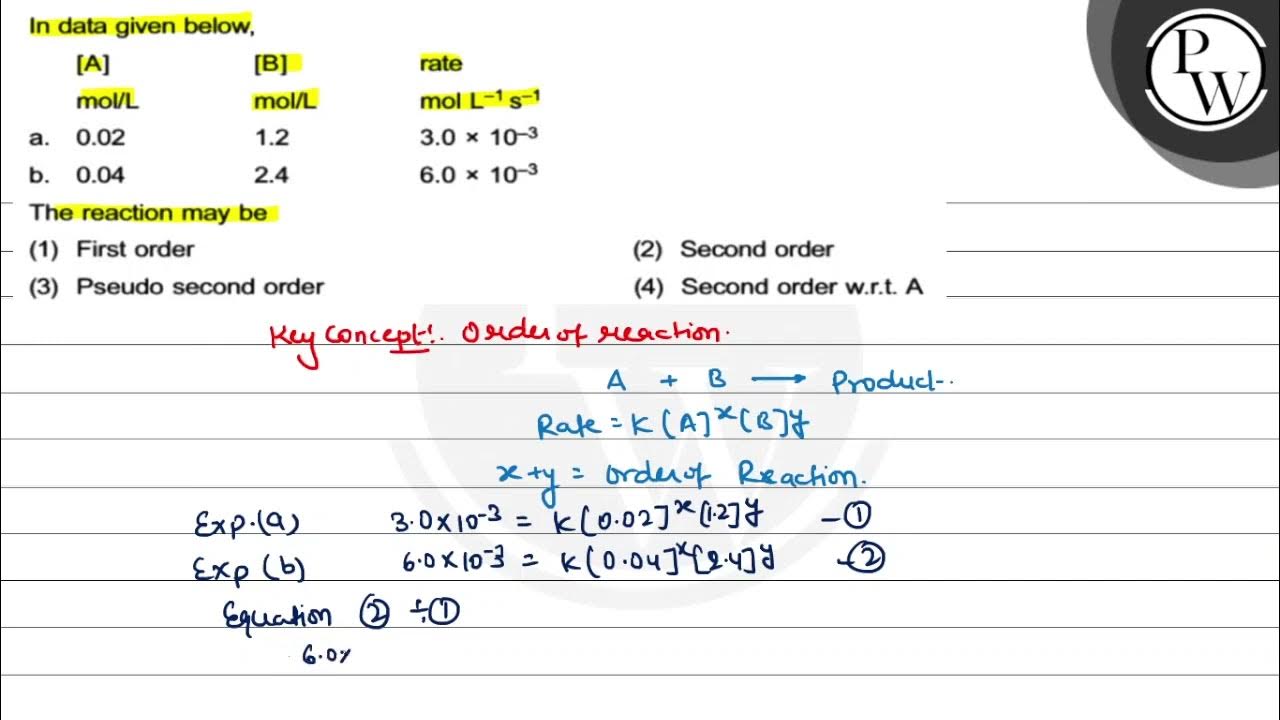 In data given below,
[A] [B] rate
mol/L mol/L mol L⁻¹ s⁻¹
a. 0.02 1.2 3.0 × 10⁻³
b. 0.04 2.4 6.0 × 10⁻³
The reaction may be
(1) First order (2) Second order
(3) Pseudo second order (4) Second order w.r.t. A
PW
Key Concept:. Order of reaction.
A + B ⟶ Product.
Rate = K [A]ˣ [B]ʸ
x+y = order of Reaction.
Exp.(a) 3.0×10⁻³ = K[0.02]ˣ[1.2]ʸ –①
Exp (b) 6.0×10⁻³ = K[0.04]ˣ[2.4]ʸ –②
Equation ② ÷ ①
6.0×